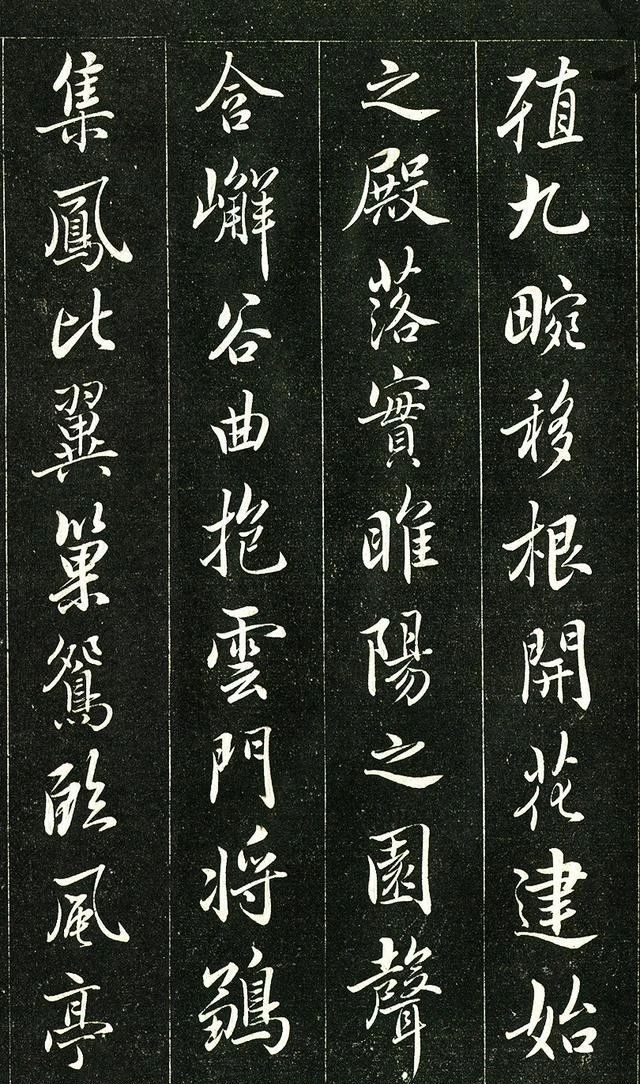 殖九畹移根開花建始
之殿落實睢陽之園聲
含嶰谷曲抱雲門将鶵
集鳳比翼巢鴛臨風亭